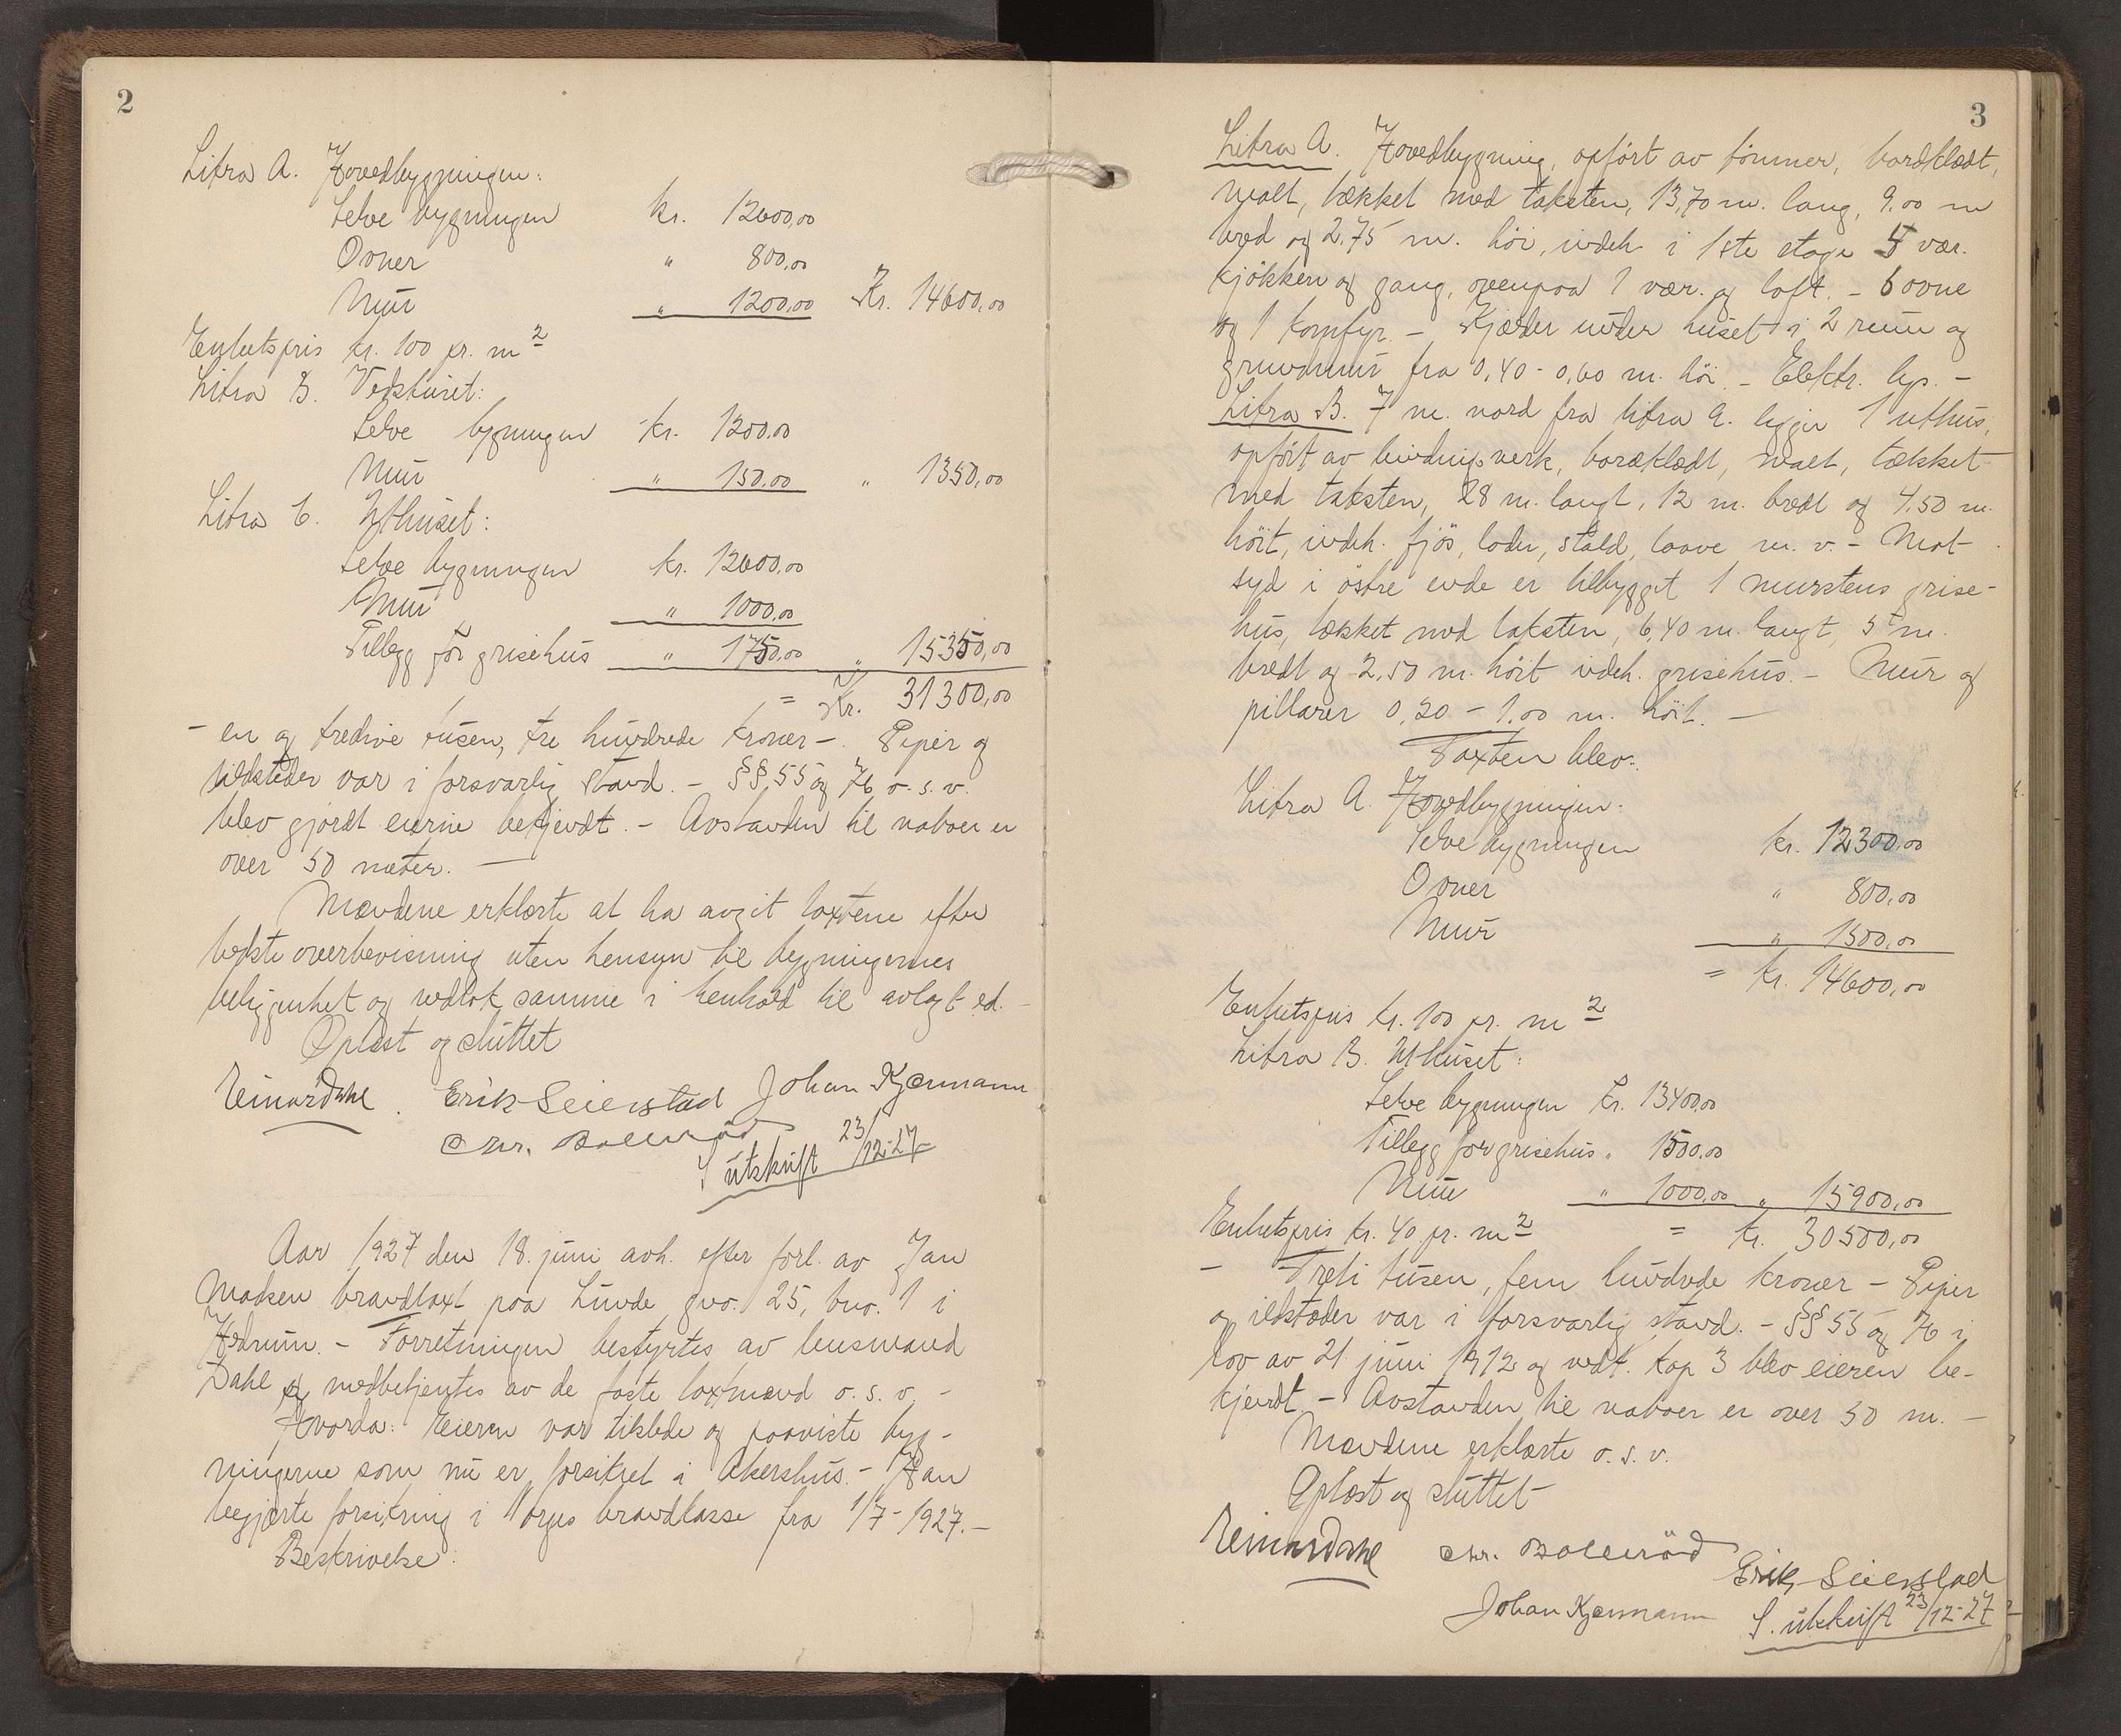 2
Litra A. Hovedbygningen:
Selve bygningen kr. 12600,00
Ovner " 800,00
Mur " 1200,00 Kr. 14600,00
Enhetspris kr. 100 pr. m2
Litra B. Vedskuret:
Selve bygningen kr. 1200,00
Mur " 150,00 " 1350,00
Litra C. Uthuset:
Selve bygningen kr. 12600,00
Mur " 1000,00
Tillegg for grisehus " 1750,00 " 15350,00
= Kr. 31300,00
- en og tredive tusen, tre hundrede kroner -. Piper og
ildsteder var i forsvarlig stand. - §§ 55 og 76 o. s. v.
blev gjordt eierne bekjendt. - Avstanden til naboer er
over 50 meter. -
Mændene erklærte at ha avgit taxtene efter
bedste overbevisning uten hensyn til bygningernes
beliggenhet og vedtok samme i henhold til avlagt ed. -
Oplæst og sluttet
Einar Dahl. Erik Seierstad Johan Kjærmann
Chr. Bollerød
S utskrift 23/12-27-
Aar 1927 den 18. juni avh. efter forl. av Jan
Madsen brandtaxt paa Lunde gno. 25, bno. 1 i
Hedrum. - Forretningen bestyrtes av lensmand
Dahl og medbetjentes av de faste taxtmænd o. s. v. -
Hvorda: Eieren var tilstede og paaviste byg-
ningerne som nu er forsikret i Akershus. - Han
begjærte forsikring i Norges brandkasse fra 1/7-1927. -
Beskrivelse:
3
Litra A. Hovedbygning, opført av tømmer, bordklædt,
malt, tækket med taksten, 13,70 m. lang, 9.00 m
bred og 2,75 m. høi, indeh. i 1ste etage 5 vær.
kjøkken og gang, ovenpaa 1 vær. og loft. - 6 ovne
og 1 komfyr. - Kjælder under huset i 2 rum og
grundmur fra 0,40 - 0,60 m. høi. - Elektr. lys. -
Litra B. 7 m. nord fra litra A. ligger 1 uthus,
opført av bindingsverk, bordklædt, malt, tækket
med taksten, 28 m. langt, 12 m. bredt og 4,50 m.
høit, indeh. fjøs, lader, stald, laave m. v. - Mot
syd i østre ende er tilbygget 1 murstens grise-
hus, tækket med taksten, 6,40 m. langt, 5 m.
bredt og 2,50 m. høit indeh. grisehus. - Mur og
pillarer 0,20 - 1.00 m. høit. -
Taxten blev:
Litra A. Hovedbygningen:
Selve bygningen kr. 12300,00
Ovner " 800,00
Mur " 1500,00
= kr. 14600,00
Enhetspris kr. 100 pr. m2
Litra B. Uthuset:
Selve bygningen kr. 13400,00
Tillegg for grisehus " 1500,00
Mur " 1000,00 " 15900,00
Enhetspris kr. 40 pr. m2 = kr. 30500,00
- Treti tusen, fem hundrede kroner - Piper
og ildsteder var i forsvarlig stand. - §§ 55 og 76 i
lov av 21 juni 1912 og vedt. kap 3 blev eieren be-
kjendt. - Avstanden til naboer er over 50 m. -
Mændene erklærte o. s. v.
Oplæst og sluttet
Einar Dahl Chr. Bollerød Erik Seierstad
Johan Kjærmann S. utskrift 23/12-27